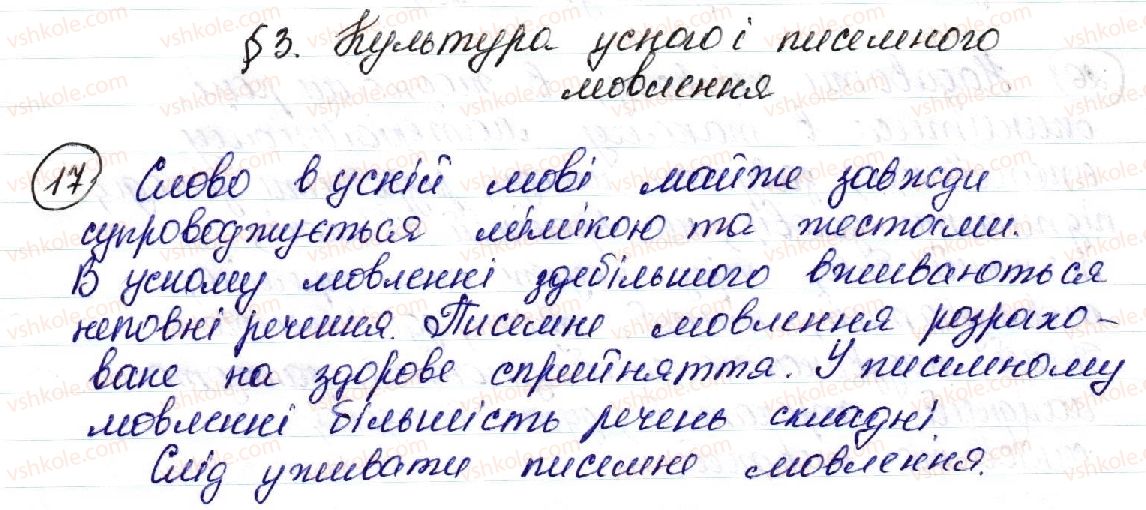 §3. Культура усного і писемного
мовлення
17 Слово в усній мові майже завжди
супроводжується мімікою та жестами.
В усному мовленні здебільшого вживаються
неповні речення. Писемне мовлення розрахо-
ване на здорове сприйняття. У писемному
мовленні більшість речень складні
Слід уживати писемне мовлення.